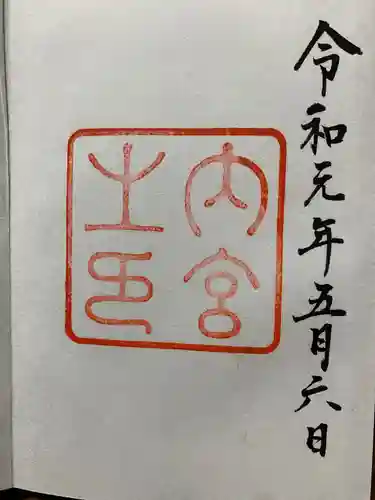 令和元年五月六日
内宮
之印